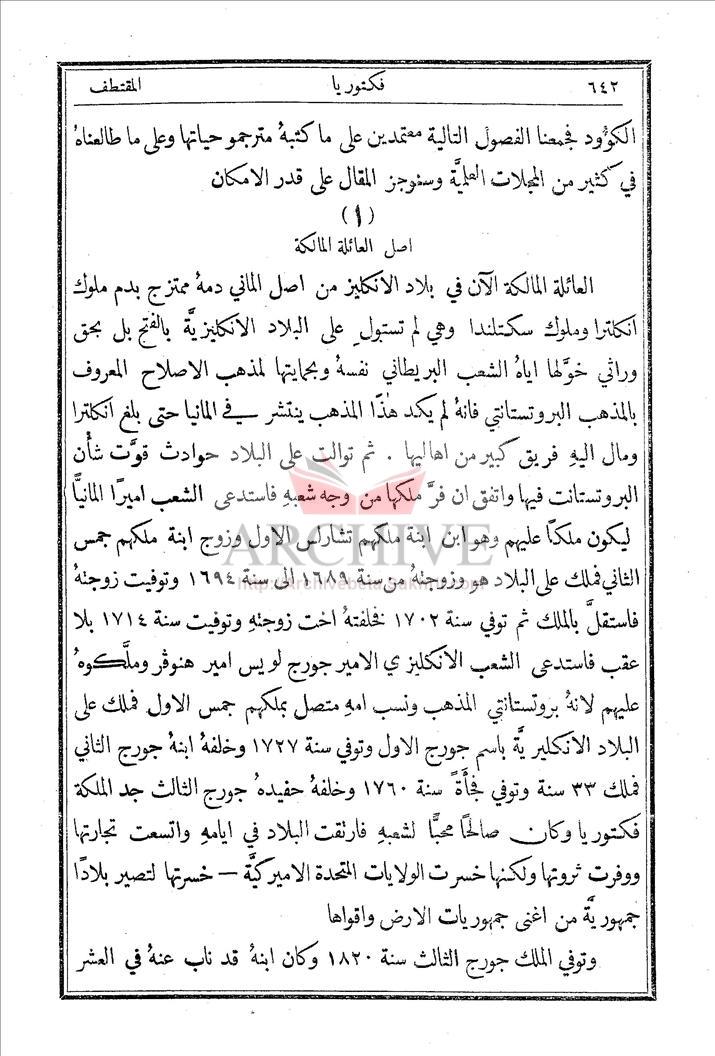 ٦٤٢ فكتوريا المقتطف
الكؤود فجمعنا الفصول التالية معتمدين على ما كتبهُ مترجمو حياتها وعلى ما طالعناهُ
في كثير من المجلات العلميَّة وسنوجز المقال على قدر الامكان
(١)
اصل العائلة المالكة
العائلة المالكة الآن في بلاد الانكليز من اصل الماني دمهُ ممتزج بدم ملوك
انكلترا وملوك سكتلندا وهي لم تستولِ على البلاد الانكليزيَّة بالفتح بل بحق
وراثي خوَّلها اياهُ الشعب البريطاني نفسهُ وبحمايتها لمذهب الاصلاح المعروف
بالمذهب البروتستانتي فانهُ لم يكد هٰذا المذهب ينتشر في المانيا حتى بلغ انكلترا
ومال اليهِ فريق كبير من اهاليها . ثم توالت على البلاد حوادث قوَّت شأن
البروتستانت فيها واتفق ان فرَّ ملكها من وجه شعبهِ فاستدعى الشعب اميرًا المانيًّا
ليكون ملكاً عليهم وهو ابن ابنة ملكهم تشارلس الاول وزوج ابنة ملكهم جمس
الثاني فملك على البلاد هو وزوجتهُ من سنة ١٦٨٩ الى سنة ١٦٩٤ وتوفيت زوجتهُ
فاستقلَّ بالملك ثم توفي سنة ١٧٠٢ فخلفتهُ اخت زوجتهِ وتوفيت سنة ١٧١٤ بلا
عقب فاستدعى الشعب الانكليزي الامير جورج لويس امير هنوڤر وملَّكوهُ
عليهم لانهُ بروتستانتي المذهب ونسب امهِ متصل بملكهم جمس الاول فملك على
البلاد الانكليزيَّة باسم جورج الاول وتوفي سنة ١٧٢٧ وخلفهُ ابنهُ جورج الثاني
فملك ٣٣ سنة وتوفي فجأَةً سنة ١٧٦٠ وخلفهُ حفيدهُ جورج الثالث جد الملكة
فكتوريا وكان صالحًا محبًّا لشعبهِ فارتقت البلاد في ايامهِ واتسعت تجارتها
ووفرت ثروتها ولكنها خسرت الولايات المتحدة الاميركيَّة — خسرتها لتصير بلادًا
جمهوريَّة من اغنى جمهوريات الارض واقواها
وتوفي الملك جورج الثالث سنة ١٨٢٠ وكان ابنهُ قد ناب عنهُ في العشر
ARCHIVE